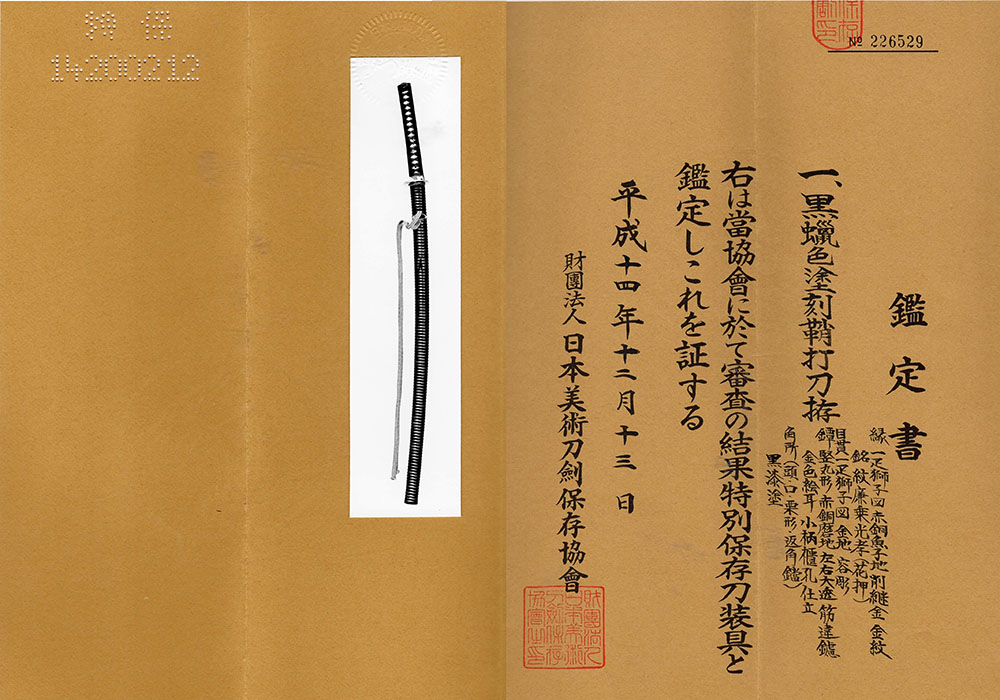 № 226529
鑑定書
一、黒蠟色塗刻鞘打刀拵
縁 一疋獅子図 赤銅魚子地 前継金 金紋
銘 紋廉乗 光孝(花押)
目貫 一疋獅子図 金地 容彫
鐔 竪丸形 赤銅磨地 左右大透 筋違鑢
金色絵耳 小柄櫃孔 仕立
角所(頭・口・栗形・返角・鐺)
黒漆塗
右は當協會に於て審査の結果特別保存刀装具と
鑑定しこれを証する
平成十四年十二月十三日
財團法人 日本美術刀劍保存協會
14200212